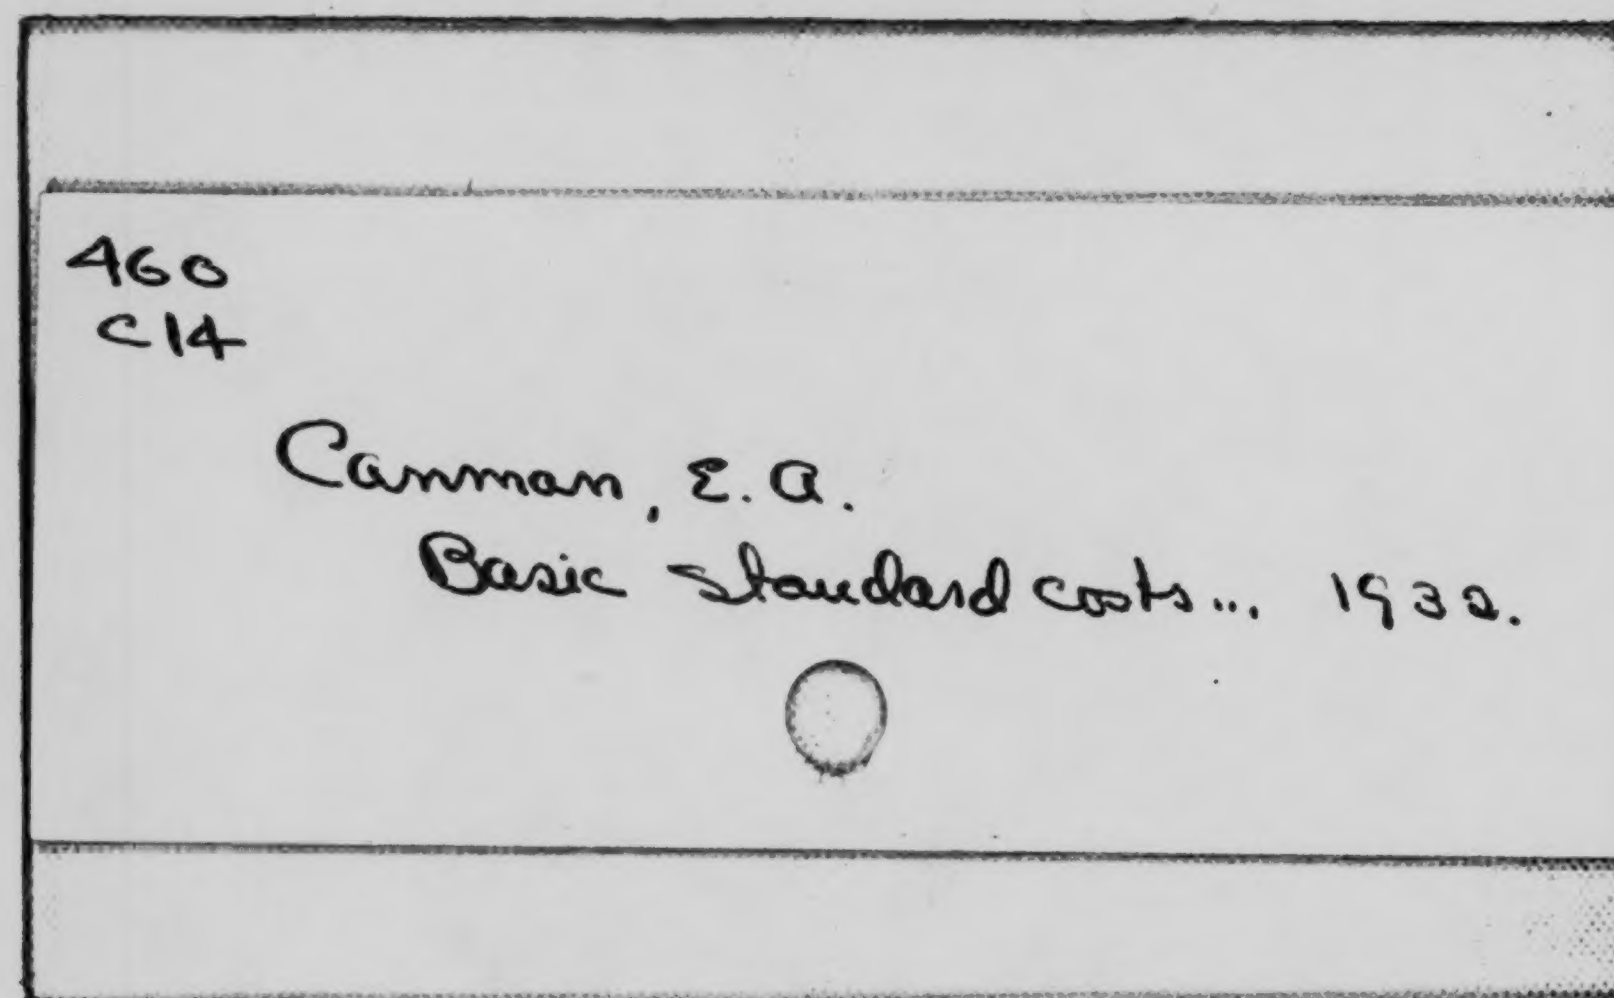 460
C14
Camman, E. A.
Basic standard costs... 1932.